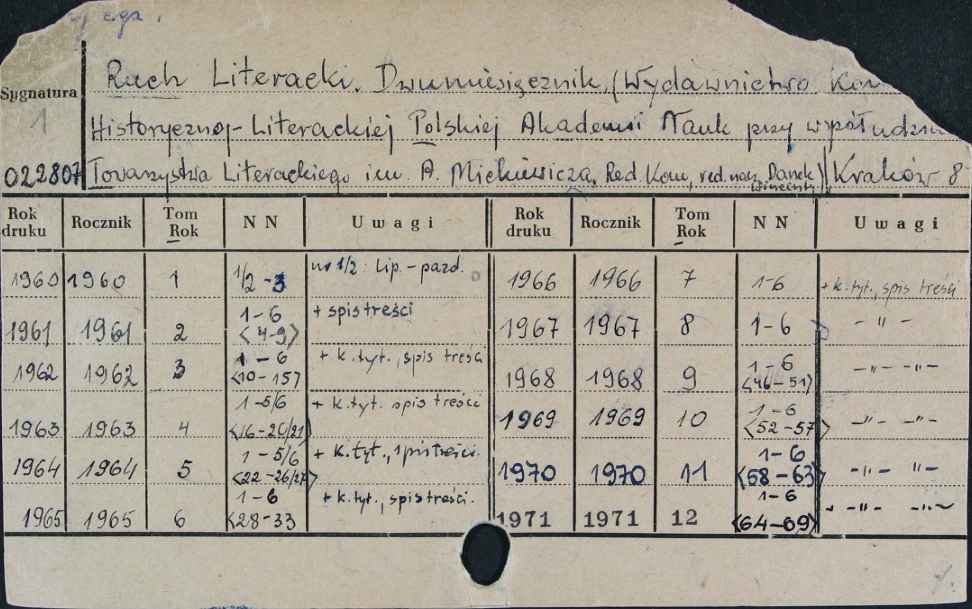 Ruch Literacki. Dwumiesięcznik. (Wydawnictwo Kom
Sygnatura
1
Historyczno-Literackiej Polskiej Akademii Nauk przy współudzia
022807 Towarzystwa Literackiego im. A. Mickiewicza, Red. Kom, red. nacz. Danek Wincenty) Kraków 8
Rok druku Rocznik Tom Rok NN Uwagi Rok druku Rocznik Tom Rok NN Uwagi
1960 1960 1 1/2-3 nr 1/2: Lip.-pazd. 1966 1966 7 1-6 + k. tyt., spis treści
1961 1961 2 1-6 <4-9> + spis treści 1967 1967 8 1-6 -"-
1962 1962 3 1-6 <10-15> + k. tyt., spis treści 1968 1968 9 1-6 <46-51> -"- -"-
1963 1963 4 1-5/6 <16-20/21> + k. tyt. spis treści 1969 1969 10 1-6 <52-57> -"- -"-
1964 1964 5 1-5/6 <22-26/27> + k. tyt., spis treści. 1970 1970 11 1-6 <58-63> -"- "-
1965 1965 6 1-6 <28-33 + k. tyt., spis treści. 1971 1971 12 1-6 <64-69> + -"- -"-